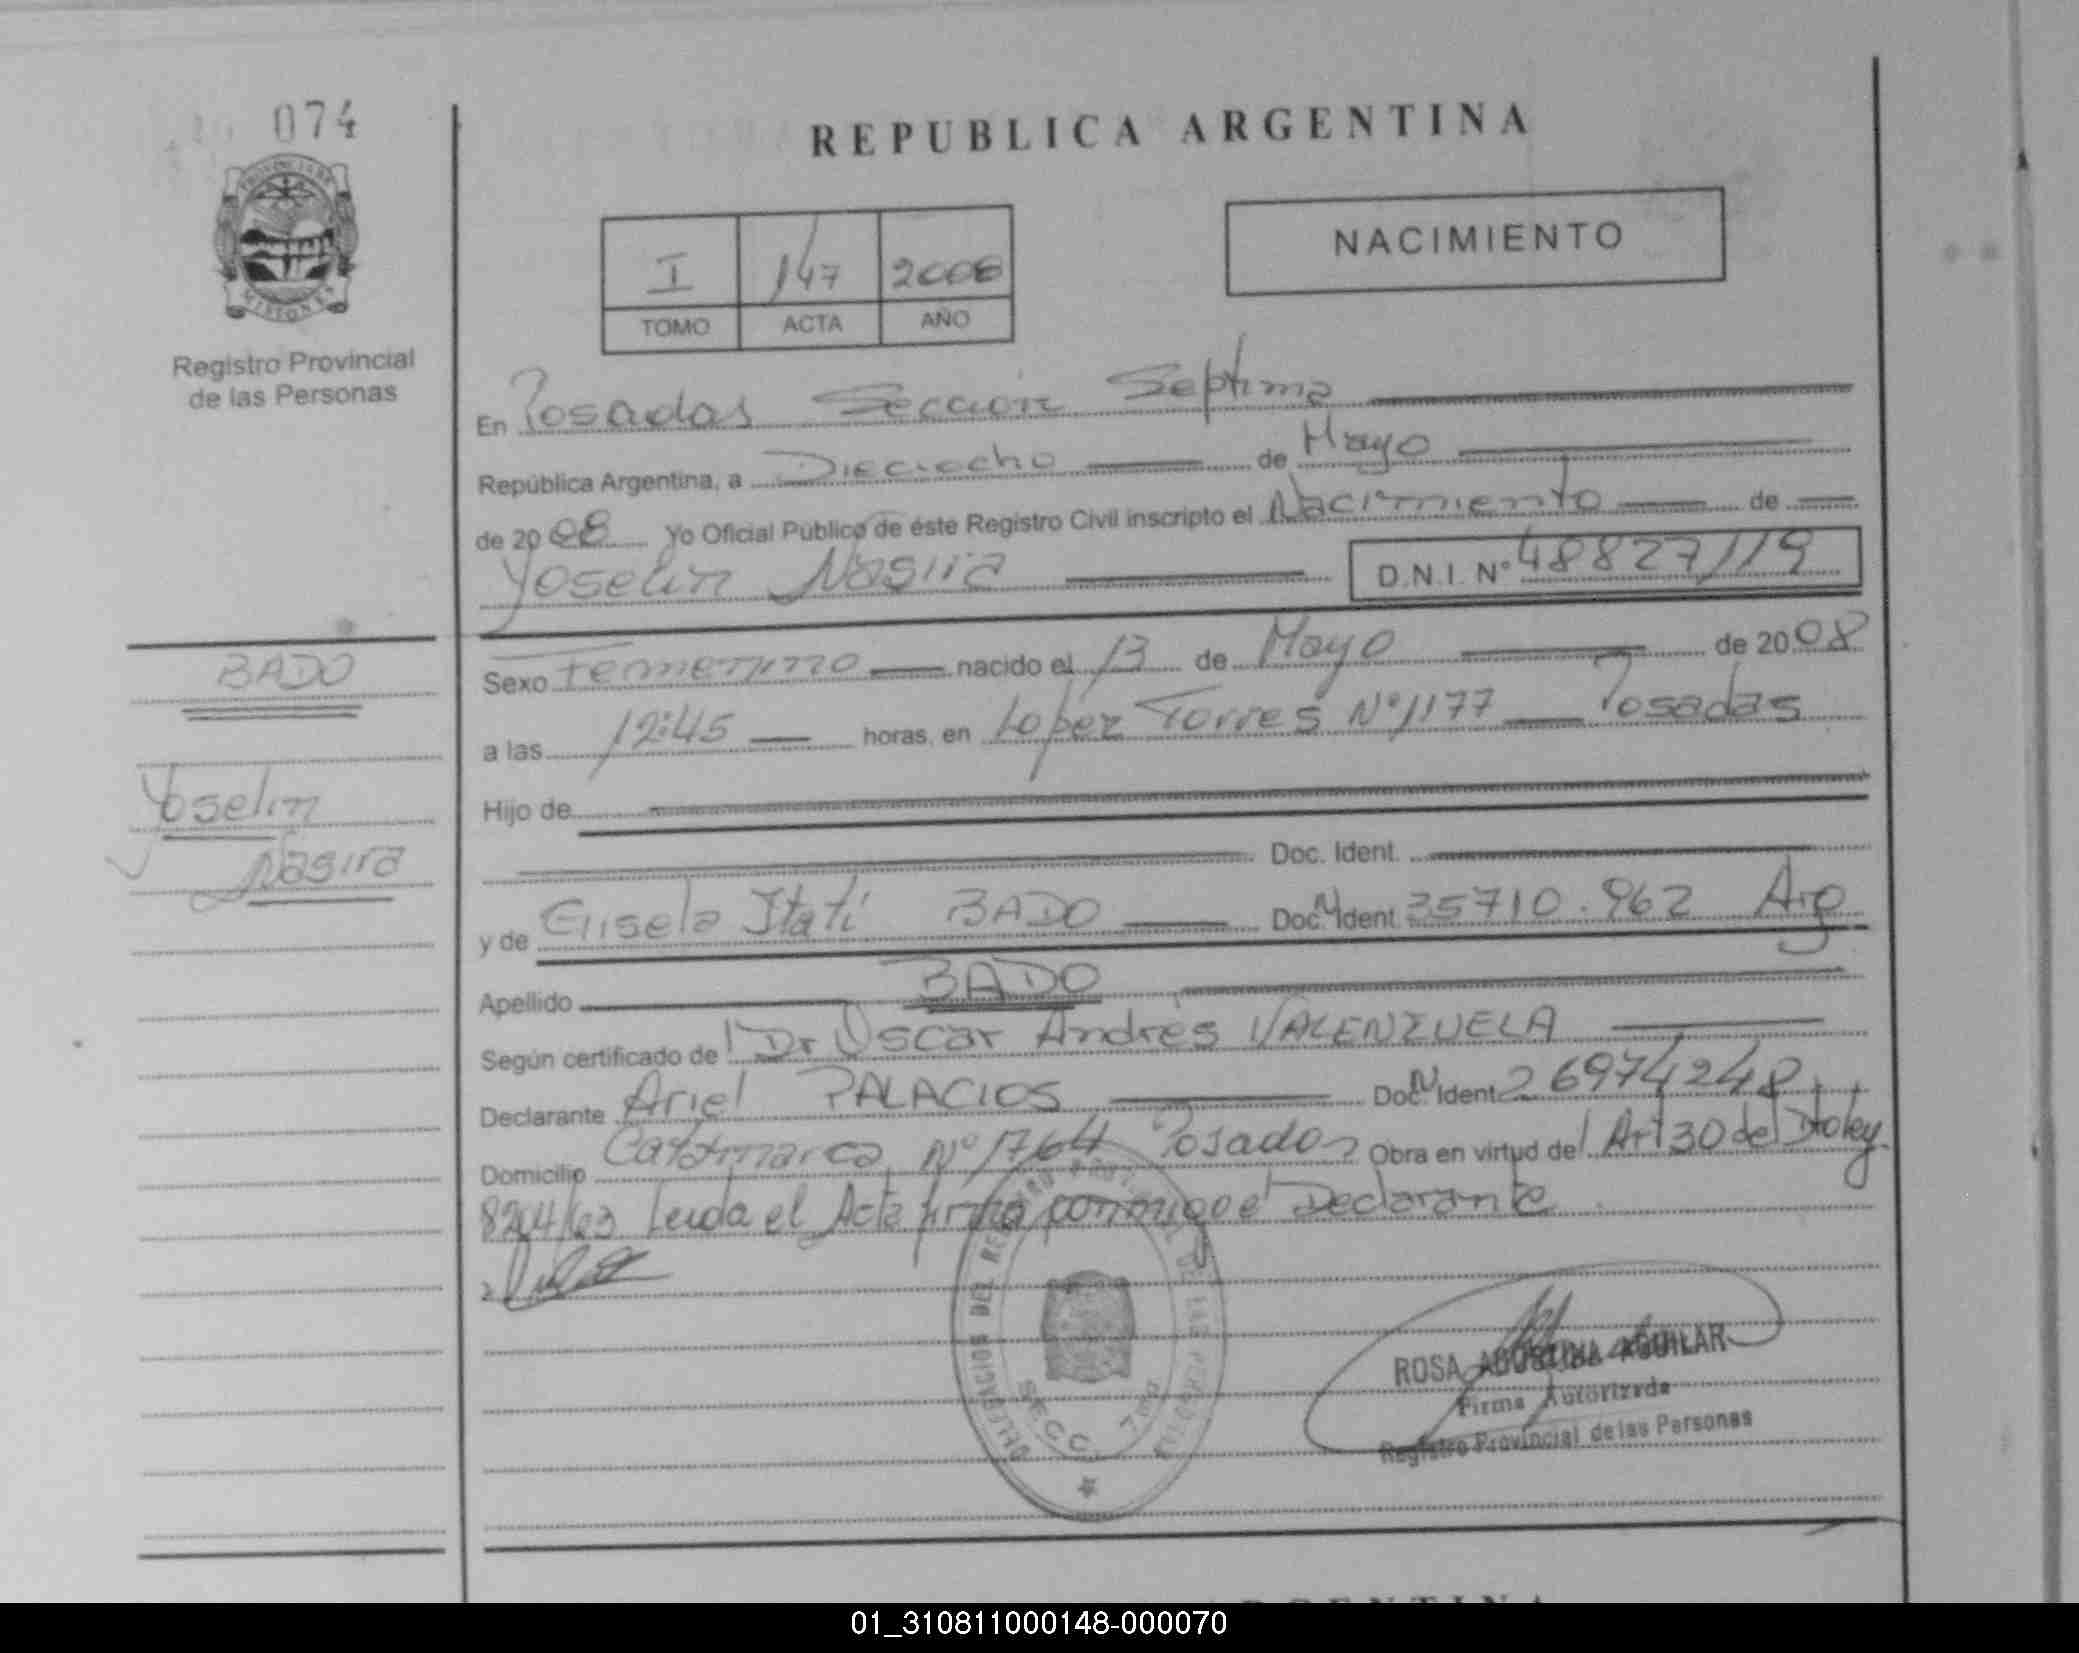 074
REPUBLICA ARGENTINA
NACIMIENTO
I 147 2008
TOMO ACTA AÑO
PROVINCIA DE
MISIONES
Registro Provincial
de las Personas
En Posadas Sección Septima
República Argentina, a Dieciocho de Mayo
de 2008 Yo Oficial Público de éste Registro Civil inscripto el Nacimiento de
Yoselin Nasira D.N.I. Nº 48827119
BADO
Yoselin
Nasira
Sexo Femenino nacido el 13 de Mayo de 2008
a las 12:45 horas, en Lopez Torres Nº 1177 Posadas
Hijo de
Doc. Ident.
y de Gisela Itatí BADO Doc. N Ident. 35710.962 Arg
Apellido BADO
Según certificado de Dr Oscar Andrés VALENZUELA
Declarante Ariel PALACIOS Doc. N Ident 26974248
Domicilio Catamarca Nº 1764 Posadas Obra en virtud del Art 30 del Dtoley
8204/63 Leida el Acta firma conmigo el Declarante
DELEGACION DEL REGISTRO PROVINCIAL DE LAS PERSONAS
SECC. 7ma
ROSA AGUSTINA AGUILAR
Firma Autorizada
Registro Provincial de las Personas
ARGENTINA
01_310811000148-000070